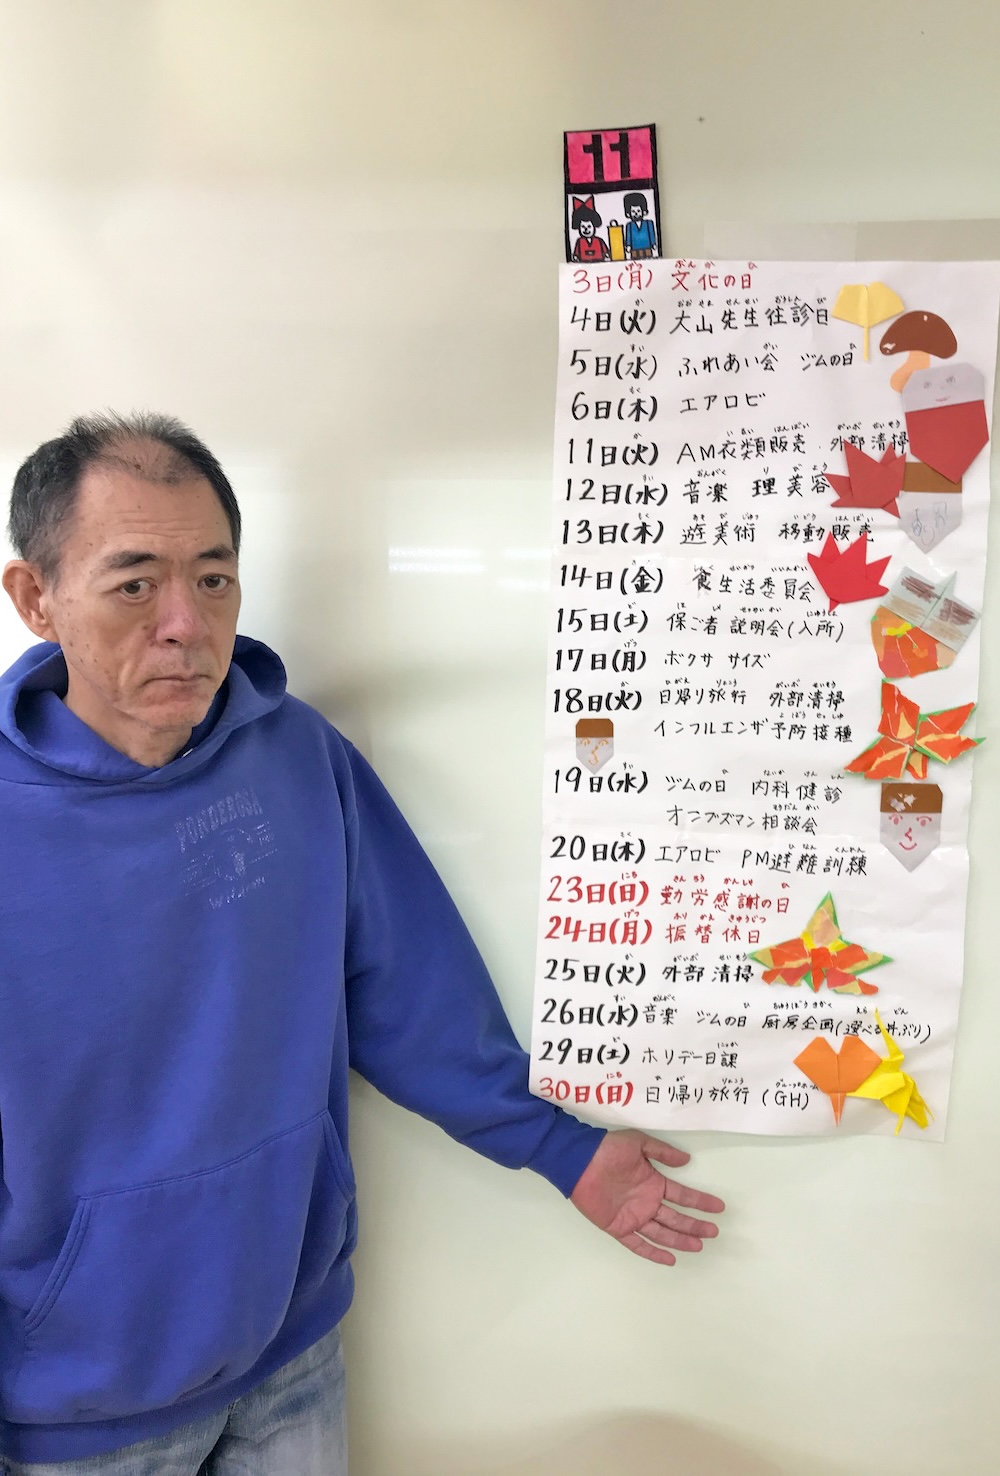 11
3日(月) 文化の日
4日(火) 大山先生往診日
5日(水) ふれあい会 ジムの日
6日(木) エアロビ
11日(火) AM衣類販売.外部清掃
12日(水) 音楽 理美容
13日(木) 遊美術 移動販売
14日(金) 食生活委員会
15日(土) 保ご者説明会(入所)
17日(月) ボクササイズ
18日(火) 日帰り旅行 外部清掃
インフルエンザ予防接種
19日(水) ジムの日 内科健診
オンブズマン相談会
20日(木) エアロビ PM避難訓練
23日(日) 勤労感謝の日
24日(月) 振替休日
25日(火) 外部清掃
26日(水) 音楽 ジムの日 厨房企画(選べる丼ぶり)
29日(土) ホリデー日課
30日(日) 日帰り旅行 (GH)
PONDEROSA